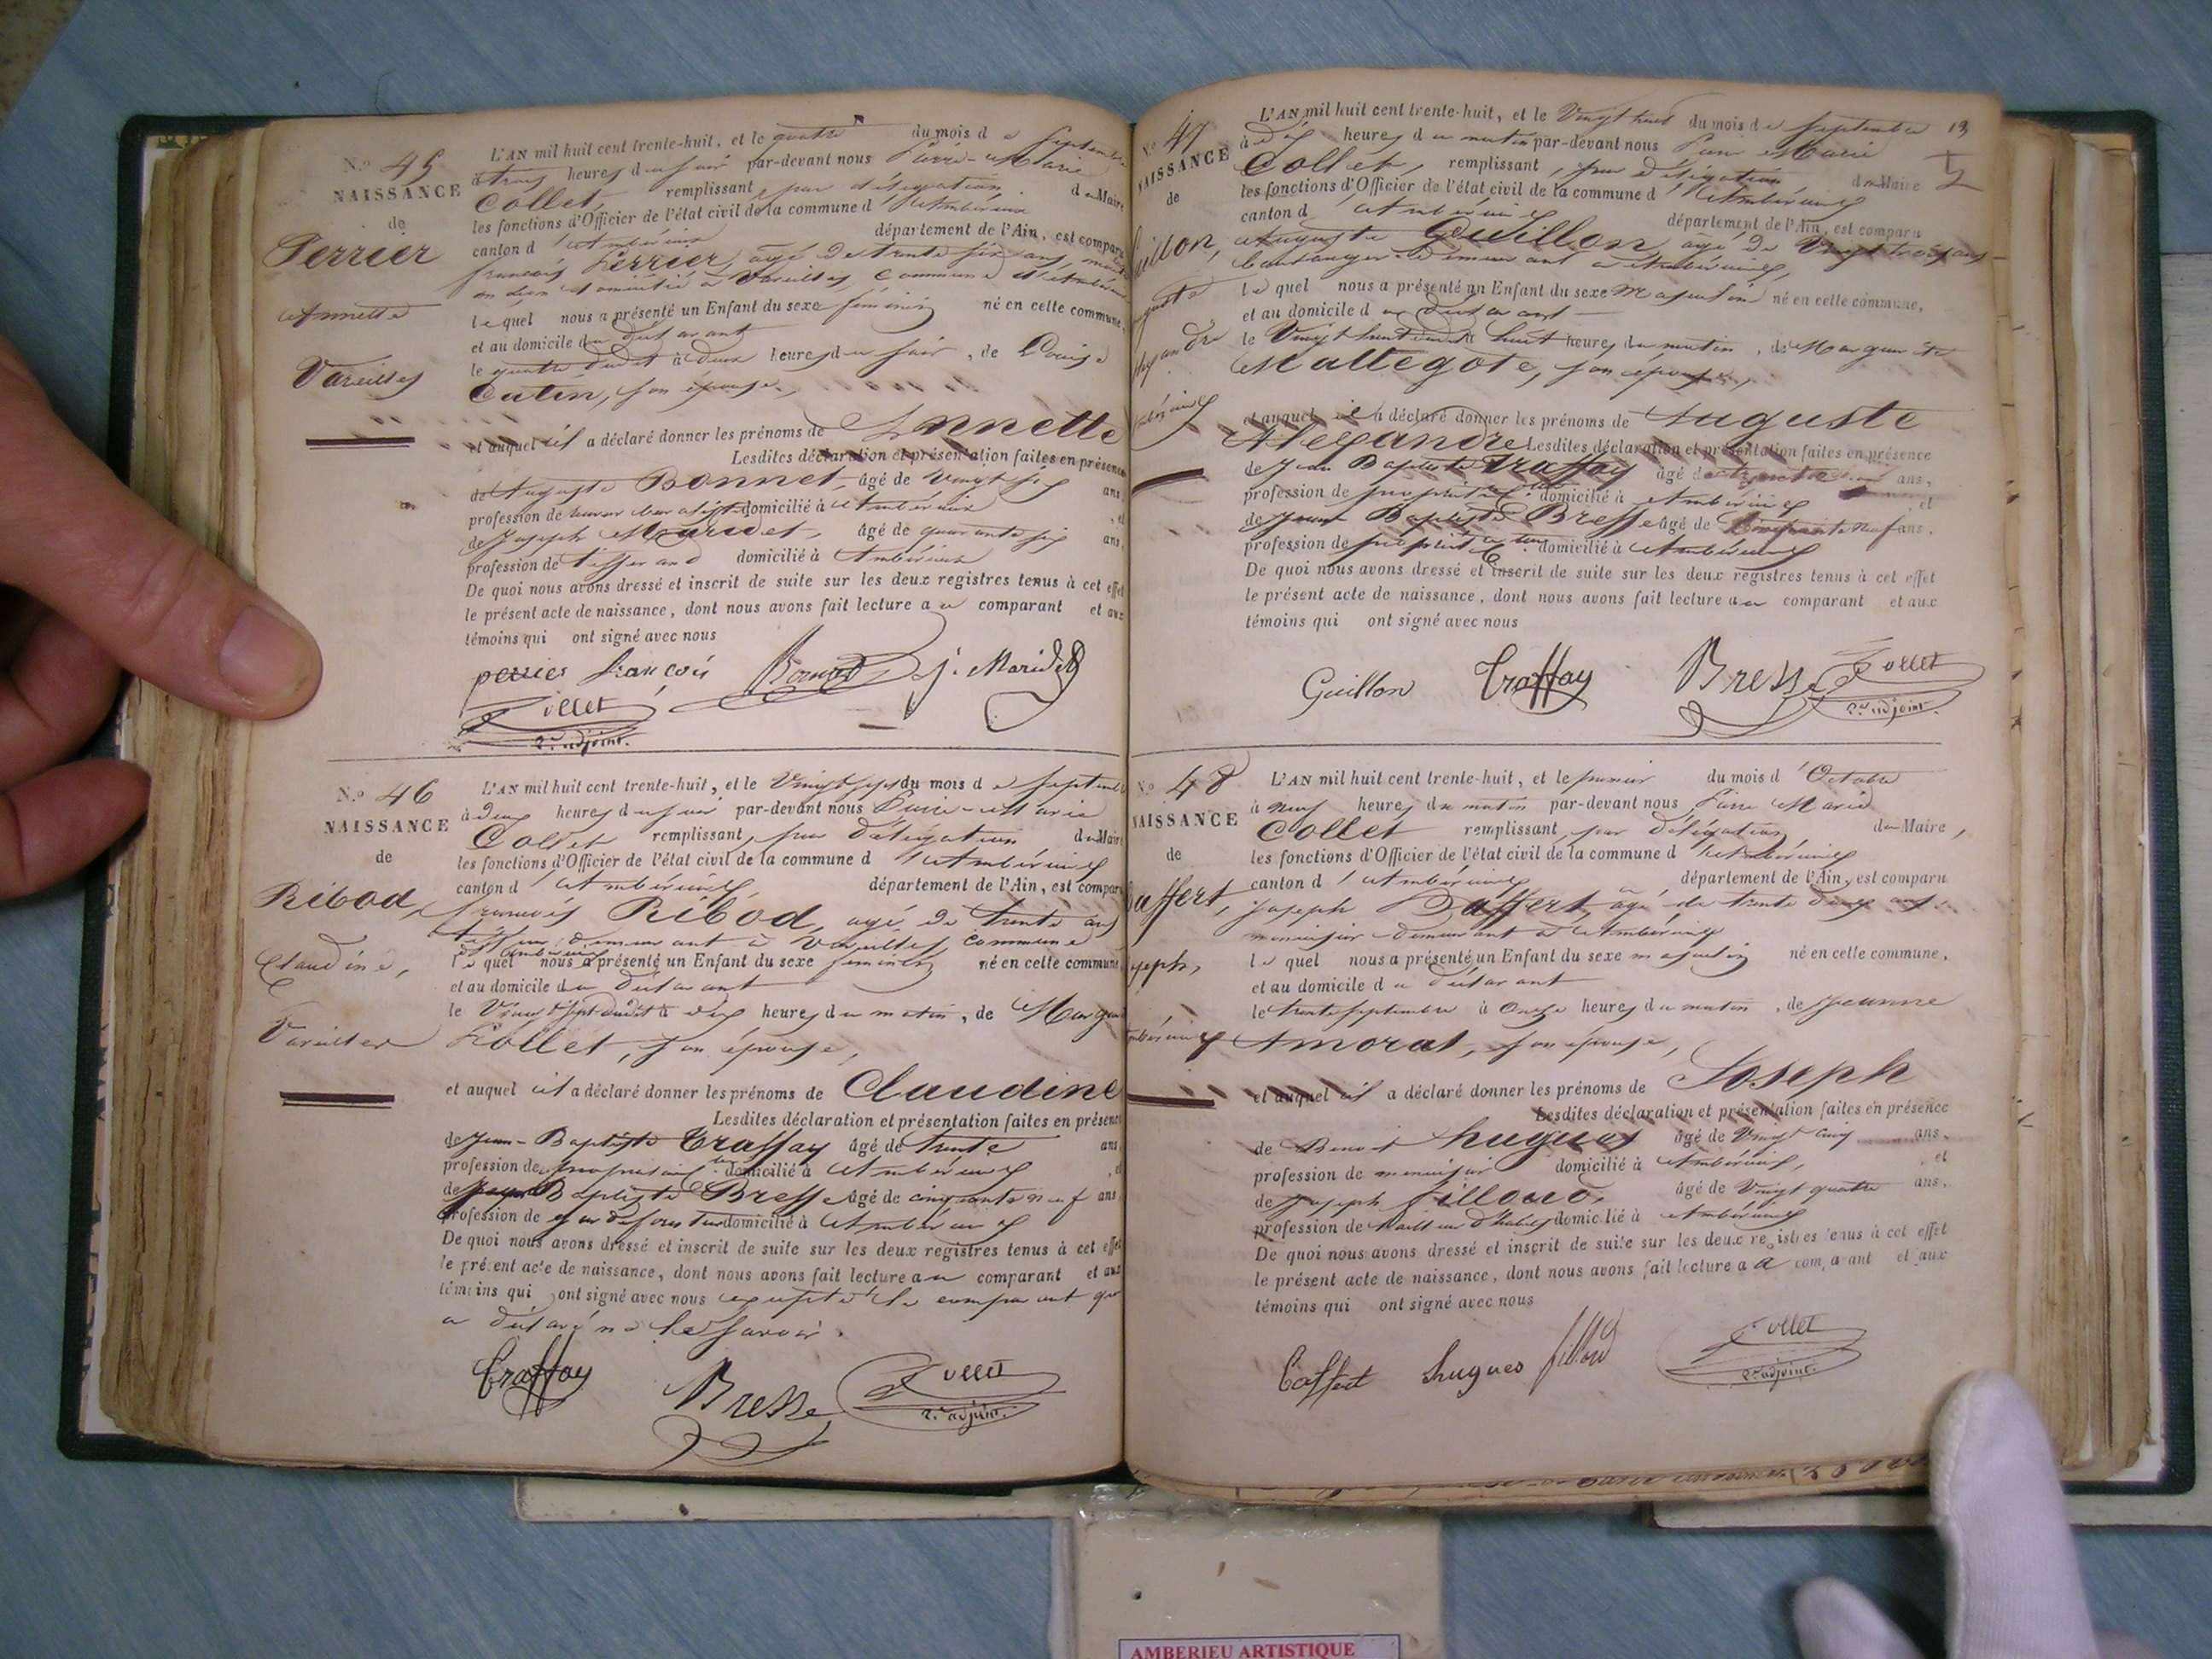 N.o 45
NAISSANCE
de
Perrier
Annette
Vareilles
L'AN mil huit cent trente-huit, et le quatre du mois de Septembre
à trois heures du soir par-devant nous Pierre-Marie
Collet, remplissant, par délégation du Maire
les fonctions d'Officier de l'état civil de la commune d'Ambérieux
canton d'Ambérieux département de l'Ain, est comparu
françois Perrier, agé de trente six ans,
domicilié à Vareilles, Commune d'Ambérieux
lequel nous a présenté un Enfant du sexe féminin né en cette commune,
et au domicile du déclarant
le quatre dudit à deux heures du soir, de Louise
Cutin, son épouse,
et auquel il a déclaré donner les prénoms de Annette
Lesdites déclaration et présentation faites en présence
de Auguste Bonnet, âgé de Vingt six ans,
profession de domicilié à Ambérieux, et
de Joseph Maridet, âgé de quarante six ans,
profession de tisserand domicilié à Ambérieux
De quoi nous avons dressé et inscrit de suite sur les deux registres tenus à cet effet
le présent acte de naissance, dont nous avons fait lecture au comparant et aux
témoins qui ont signé avec nous
perrier françois Bonnet j. Maridet
Collet
2.e adjoint.
N.o 46
NAISSANCE
de
Ribod,
Claudine,
Vareilles
L'AN mil huit cent trente-huit, et le Vingt sept du mois de Septembre
à deux heures du soir par-devant nous Pierre-Marie
Collet remplissant, par délégation du Maire
les fonctions d'Officier de l'état civil de la commune d'Ambérieux
canton d'Ambérieux, département de l'Ain, est comparu
françois Ribod, agé de trente ans
demeurant à Vareilles, Commune
d'Ambérieux
lequel nous a présenté un Enfant du sexe féminin né en cette commune,
et au domicile du déclarant
le Vingt sept dudit à dix heures du matin, de
Collet, son épouse,
et auquel il a déclaré donner les prénoms de Claudine
Lesdites déclaration et présentation faites en présence
de Jean-Baptiste Traffay âgé de trente ans,
profession de propriétaire domicilié à Ambérieux, et
de Baptiste Bresse âgé de cinquante neuf ans
profession de domicilié à Ambérieux
De quoi nous avons dressé et inscrit de suite sur les deux registres tenus à cet effet
le présent acte de naissance, dont nous avons fait lecture au comparant et aux
témoins qui ont signé avec nous excepté le comparant qui
a déclaré ne le savoir.
Traffay Bresse Collet
2.e adjoint.
13
N.o 47
NAISSANCE
de
L'AN mil huit cent trente-huit, et le Vingt huit du mois de Septembre
à dix heures du matin par-devant nous Pierre Marie
Collet, remplissant, par délégation du Maire
les fonctions d'Officier de l'état civil de la commune d'Ambérieux
canton d'Ambérieux département de l'Ain, est comparu
Auguste Guillon, agé de Vingt trois ans
boulanger demeurant à Ambérieux,
lequel nous a présenté un Enfant du sexe Masculin né en cette commune,
et au domicile du déclarant
le Vingt huit dudit à huit heures du matin, de Marguerite
Mallegote, son épouse,
et auquel il a déclaré donner les prénoms de Auguste
Alexandre Lesdites déclaration et présentation faites en présence
de Jean Baptiste Traffay âgé de trente ans,
profession de propriétaire domicilié à Ambérieux, et
de Jean Baptiste Bresse âgé de Cinquante neuf ans,
profession de propriétaire domicilié à Ambérieux
De quoi nous avons dressé et inscrit de suite sur les deux registres tenus à cet effet
le présent acte de naissance, dont nous avons fait lecture au comparant et aux
témoins qui ont signé avec nous
Guillon Traffay Bresse Collet
2.e adjoint.
N.o 48
NAISSANCE
de
L'AN mil huit cent trente-huit, et le premier du mois d'Octobre
à neuf heures du matin par-devant nous Pierre Marie
Collet remplissant, par délégation du Maire,
les fonctions d'Officier de l'état civil de la commune d'Ambérieux
canton d'Ambérieux département de l'Ain, est comparu
Joseph Baffert, âgé de trente deux ans,
menuisier demeurant à Ambérieux
lequel nous a présenté un Enfant du sexe masculin né en cette commune,
et au domicile du déclarant
le trente septembre à Onze heures du matin, de Jeanne
Amorat, son épouse,
et auquel il a déclaré donner les prénoms de Joseph
Lesdites déclaration et présentation faites en présence
de Benoit hugues âgé de Vingt cinq ans,
profession de menuisier domicilié à Ambérieux, et
de Joseph filloud, âgé de Vingt quatre ans,
profession de tailleur d'habits domicilié à Ambérieux
De quoi nous avons dressé et inscrit de suite sur les deux registres tenus à cet effet
le présent acte de naissance, dont nous avons fait lecture au comparant et aux
témoins qui ont signé avec nous
Baffert hugues filloud Collet
2.e adjoint.
AMBERIEU ARTISTIQUE